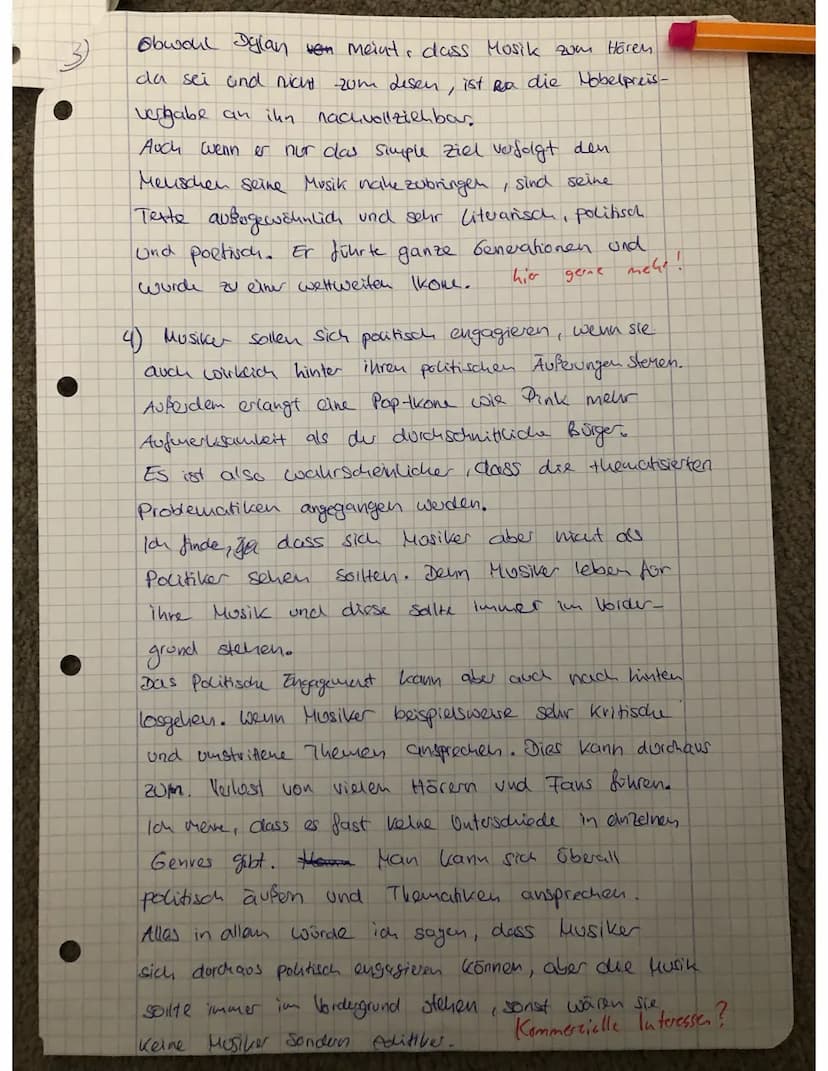 3) Obwohl Dylan von meint, dass Musik zum Hören
da sei und nicht zum Lesen, ist die Nobelpreis-
vergabe an ihn nachvollziehbar.
Auch wenn er nur das simple Ziel verfolgt den
Menschen seine Musik nahezubringen, sind seine
Texte außergewöhnlich und sehr literarisch, politisch
und poetisch. Er führte ganze Generationen und
wurde zu einer weltweiten Ikone. hier gerne mehr!
4) Musiker sollen sich politisch engagieren, wenn sie
auch wirklich hinter ihren politischen Äußerungen stehen.
Außerdem erlangt eine Pop-Ikone wie Pink mehr
Aufmerksamkeit als der durchschnittliche Bürger.
Es ist also wahrscheinlicher, dass die thematisierten
Problematiken angegangen werden.
Ich finde, dass sich Musiker aber nicht als
Politiker sehen sollten. Denn Musiker leben für
ihre Musik und diese sollte immer im Vorder-
grund stehen.
Das Politische Engagement kann aber auch nach hinten
losgehen. Wenn Musiker beispielsweise sehr kritische
und umstrittene Themen ansprechen. Dies kann durchaus
zum Verlust von vielen Hörern und Fans führen.
Ich meine, dass es fast keine Unterschiede in einzelnen
Genres gibt. Man kann sich überall
politisch äußern und Thematiken ansprechen.
Alles in allem würde ich sagen, dass Musiker
sich durchaus politisch engagieren können, aber die Musik
sollte immer im Vordergrund stehen, sonst wären sie
keine Musiker sondern Politiker. Kommerzielle Interessen?